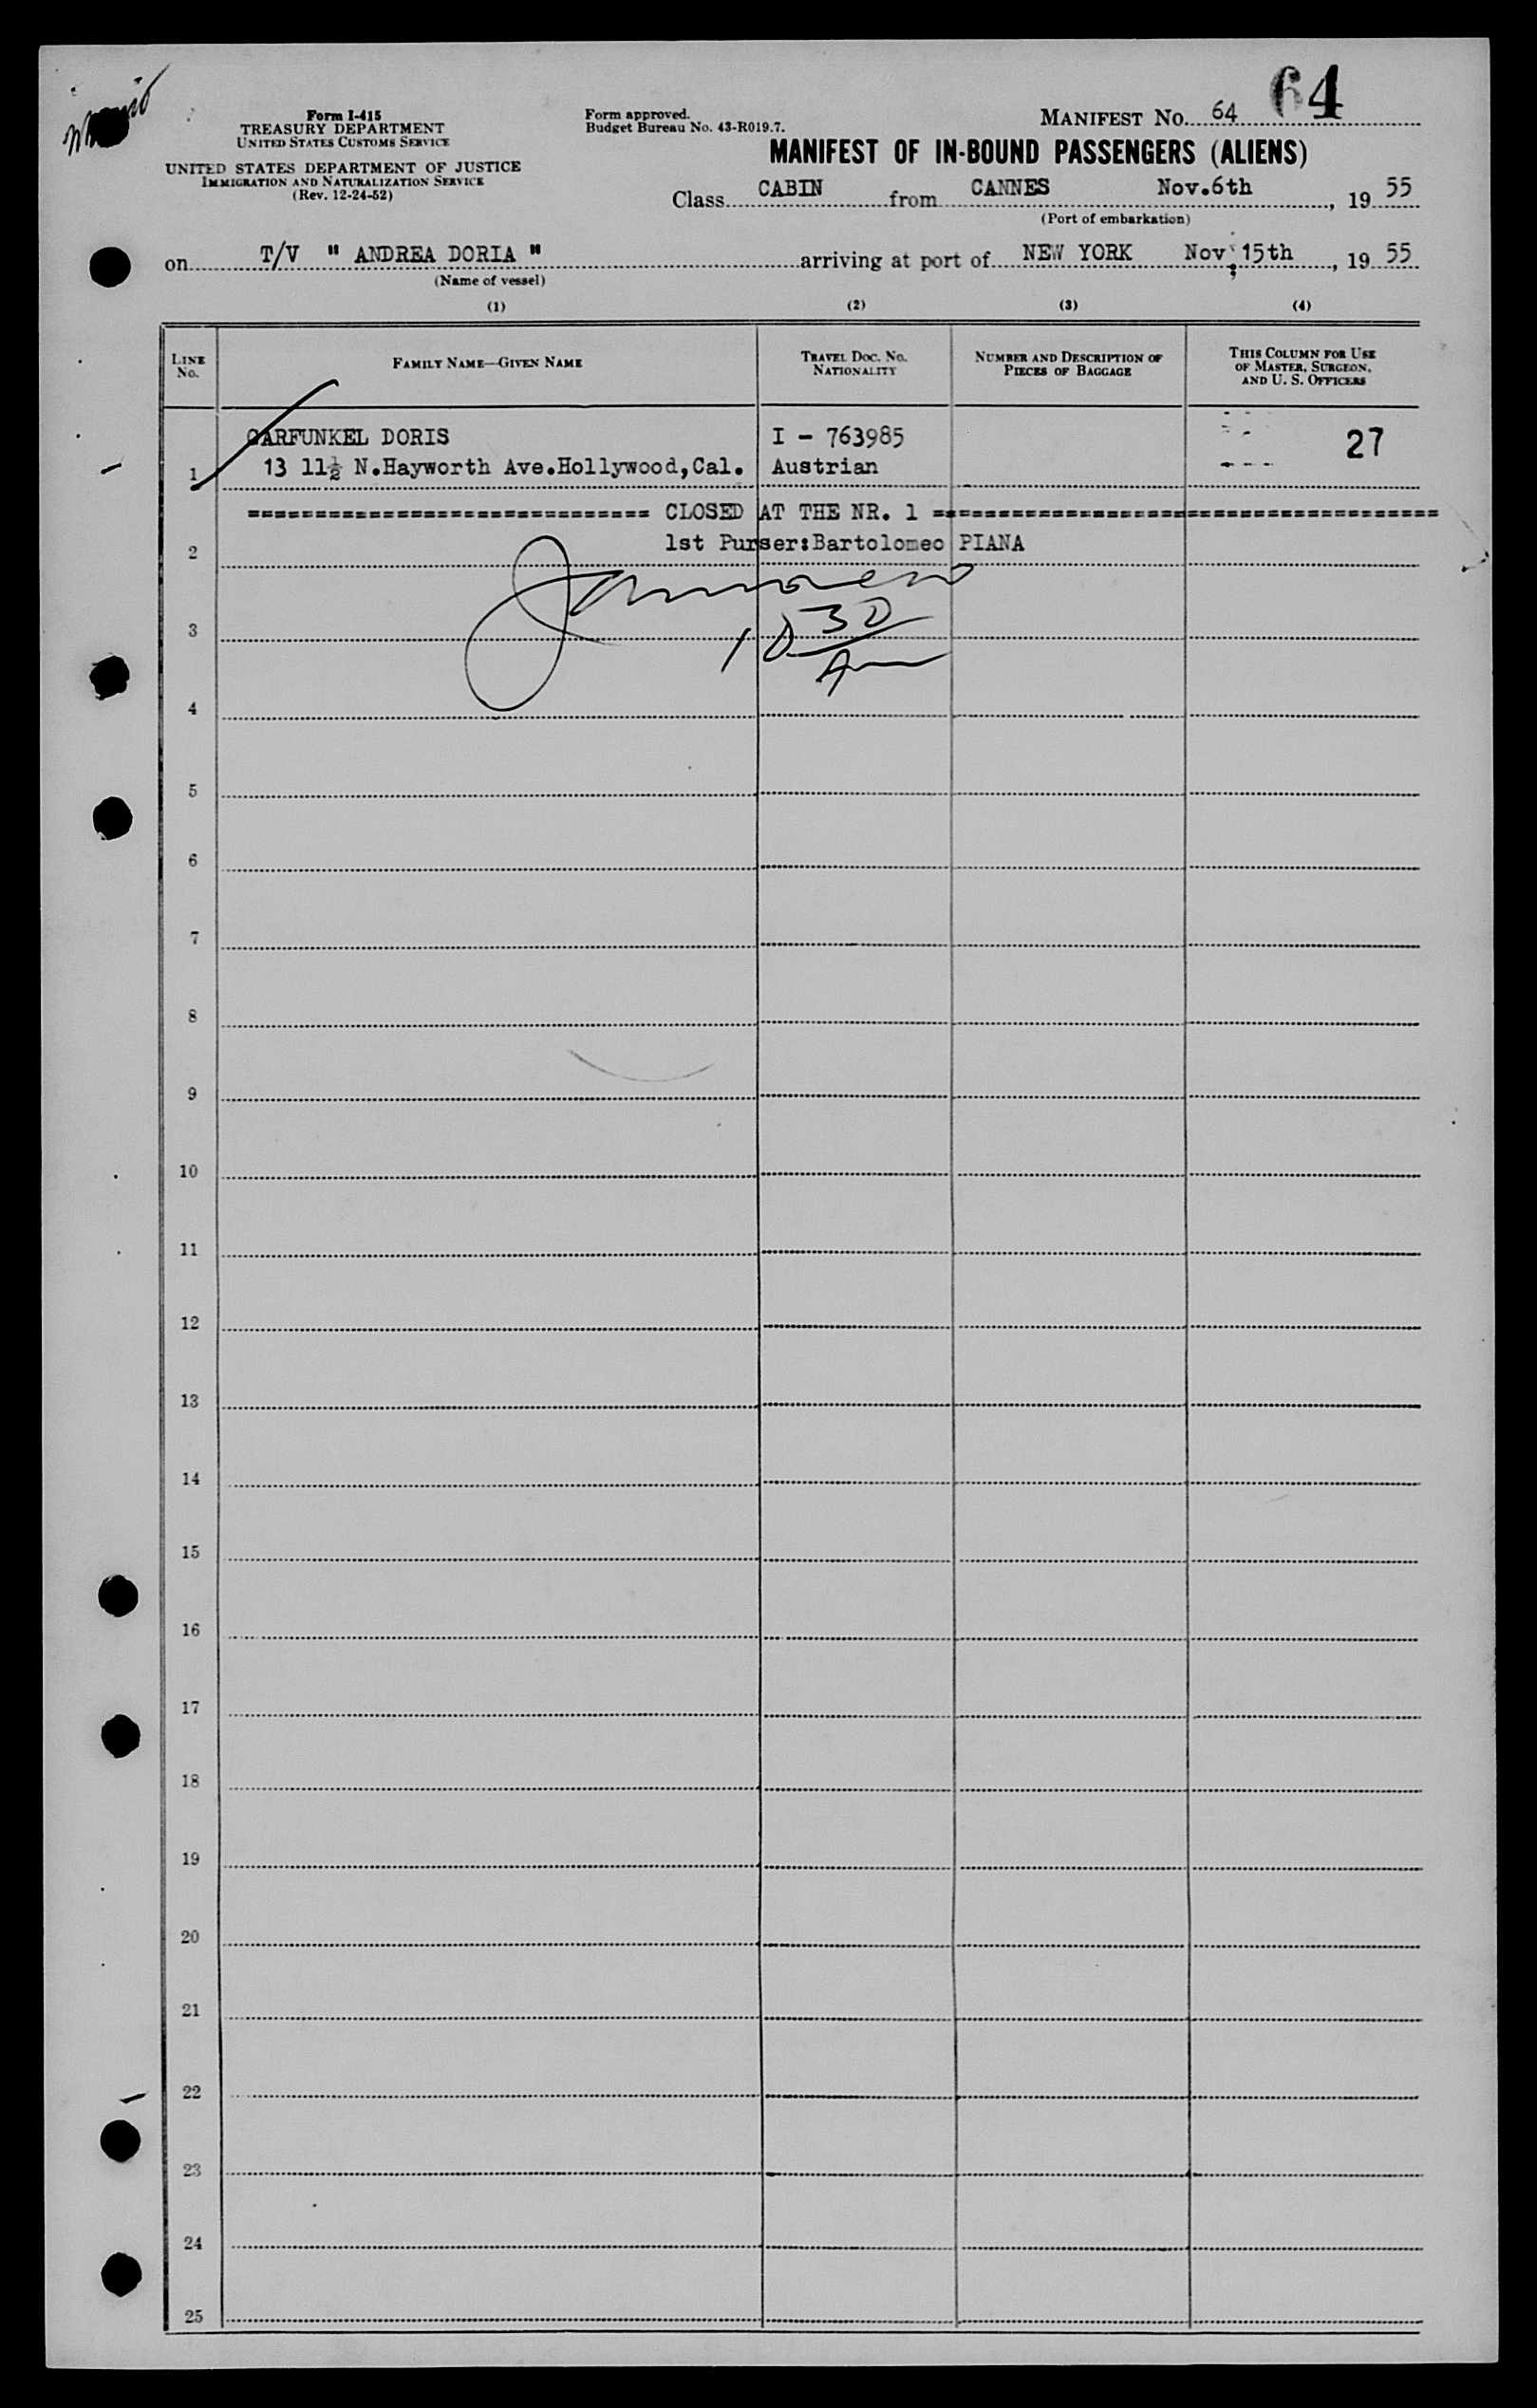 Form I-415
TREASURY DEPARTMENT
UNITED STATES CUSTOMS SERVICE
UNITED STATES DEPARTMENT OF JUSTICE
IMMIGRATION AND NATURALIZATION SERVICE
(Rev. 12-24-52)
Form approved.
Budget Bureau No. 43-R019.7.
MANIFEST NO. 64 64
MANIFEST OF IN-BOUND PASSENGERS (ALIENS)
Class CABIN from CANNES Nov.6th, 19 55
(Port of embarkation)
on T/V " ANDREA DORIA " arriving at port of NEW YORK Nov 15th, 19 55
(Name of vessel)
(1) (2) (3) (4)
LINE NO.
FAMILY NAME—GIVEN NAME
TRAVEL DOC. NO.
NATIONALITY
NUMBER AND DESCRIPTION OF
PIECES OF BAGGAGE
THIS COLUMN FOR USE
OF MASTER, SURGEON,
AND U. S. OFFICERS
GARFUNKEL DORIS I - 763985 27
1 13 11½ N.Hayworth Ave.Hollywood,Cal. Austrian
============================== CLOSED AT THE NR. 1 =====================================
2 1st Purser:Bartolomeo PIANA
3 10 30
4
5
6
7
8
9
10
11
12
13
14
15
16
17
18
19
20
21
22
23
24
25